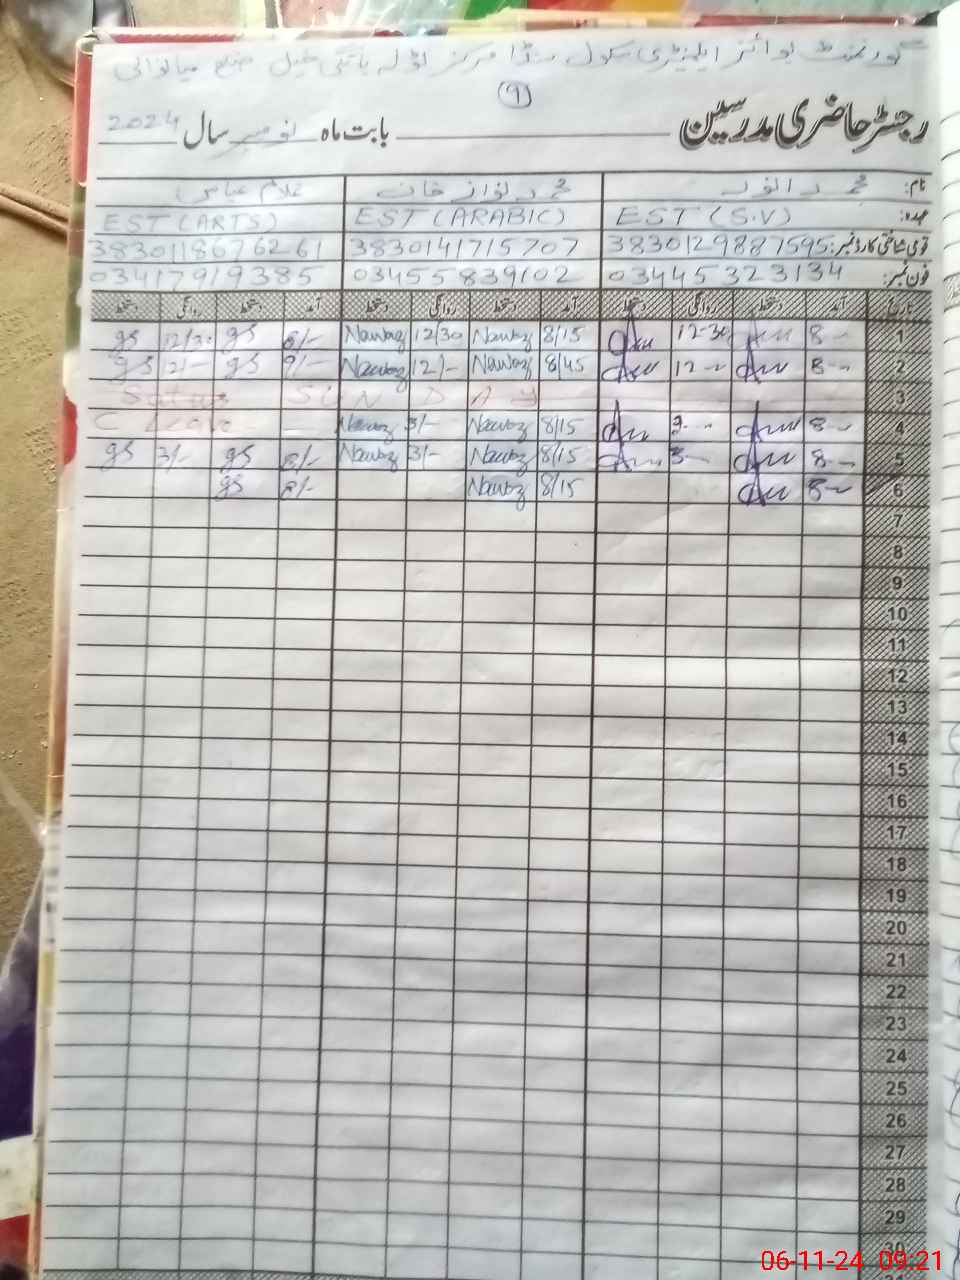 گورنمنٹ بوائز ایلیمنٹری سکول مرکز ضلع میانوالی
(9)
رجسٹر حاضری مدرسین بابت ماہ نومبر سال 2024
نام: محمد انور محمد نواز خان غلام عباس
عہدہ: EST (S.V) EST (ARABIC) EST (ARTS)
قومی شناختی کارڈ نمبر: 3830129887595 3830141715707 3830118676261
فون نمبر: 03445323134 03455839102 03417919385
تاریخ آمد دستخط روانگی دستخط آمد دستخط روانگی دستخط آمد دستخط روانگی دستخط
1 8 12-30 8/15 Nawaz 12/30 Nawaz 8/- gs 12/30 gs
2 8 12 8/45 Nawaz 12/- Nawaz 9/- gs 12/- gs
3 SUNDAY
4 8 3 8/15 Nawaz 3/- Nawaz C Leave
5 8 3 8/15 Nawaz 3/- Nawaz 8/- gs 3/- gs
6 8 8/15 Nawaz 8/- gs
7
8
9
10
11
12
13
14
15
16
17
18
19
20
21
22
23
24
25
26
27
28
29
30
06-11-24 09:21